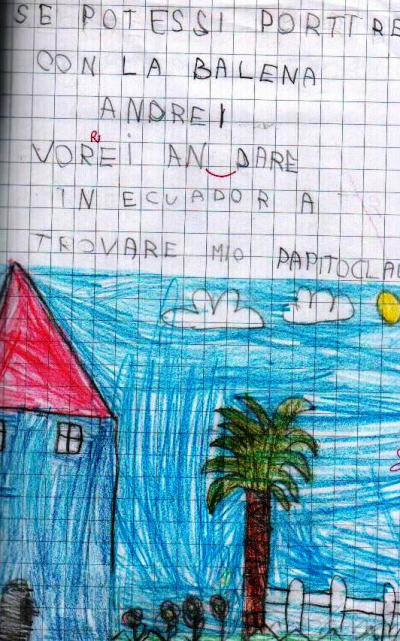 SE POTESSI PORTIRE
CON LA BALENA
ANDREI
VORREI AN DARE
IN ECUADOR A
TROVARE MIO PAPITOCLAU